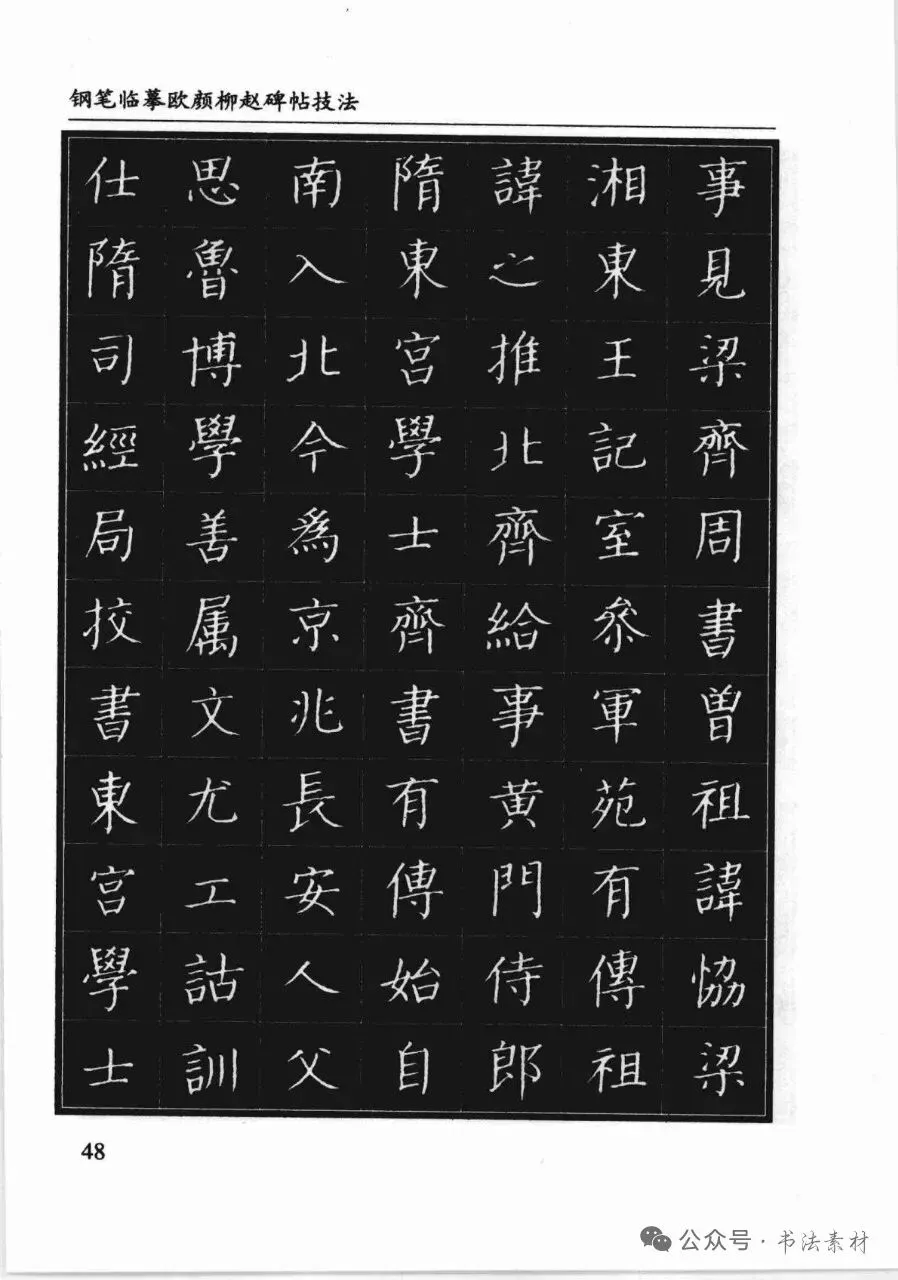 钢笔临摹欧颜柳赵碑帖技法
事見梁齊周書曽祖諱恊梁
湘東王記室叅軍苑有傳祖
諱之推北齊給事黄門侍郎
隋東宫學士齊書有傳始自
南入北今爲京兆長安人父
思魯博學善属文尤工詁訓
仕隋司經局挍書東宫學士
48
公众号·书法素材